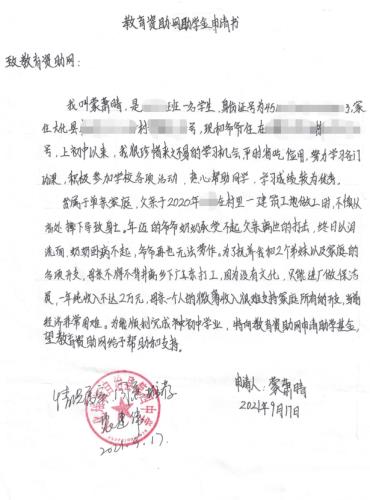 教育资助网助学金申请书
致教育资助网:
我叫蒙萧晴,是 班一名学生,身份证号为45 3,家
住大化县 村 号,现和爷爷住在 月
号,上初中以来,我很珍惜来之不易的学习机会,平时省吃俭用,努力学习各门
功课,积极参加学校各项活动,热心帮助同学,学习成绩较为优秀。
我属于单亲家庭,父亲于2020年 在村里一建筑工地做工时,不慎从
高处摔下导致身亡。年迈的爷爷奶奶承受不起父亲离世的打击,终日以泪
洗面,奶奶因病不起,爷爷再也无法劳作。为了抚养我和2个弟妹以及家庭的
各项开支,母亲不得不背井离乡下广东打工,因为没有文化,只能进厂做保洁
员,一年纯收入不达2万元,母亲一个人的微薄收入很难支持家庭所有的开支,家庭
经济非常困难。为能顺利完成初中学业,特向教育资助网申请助学基金,
望教育资助网给予帮助和支持。
情况属实,
申请人:蒙萧晴
2021年9月17日
2021.9.17